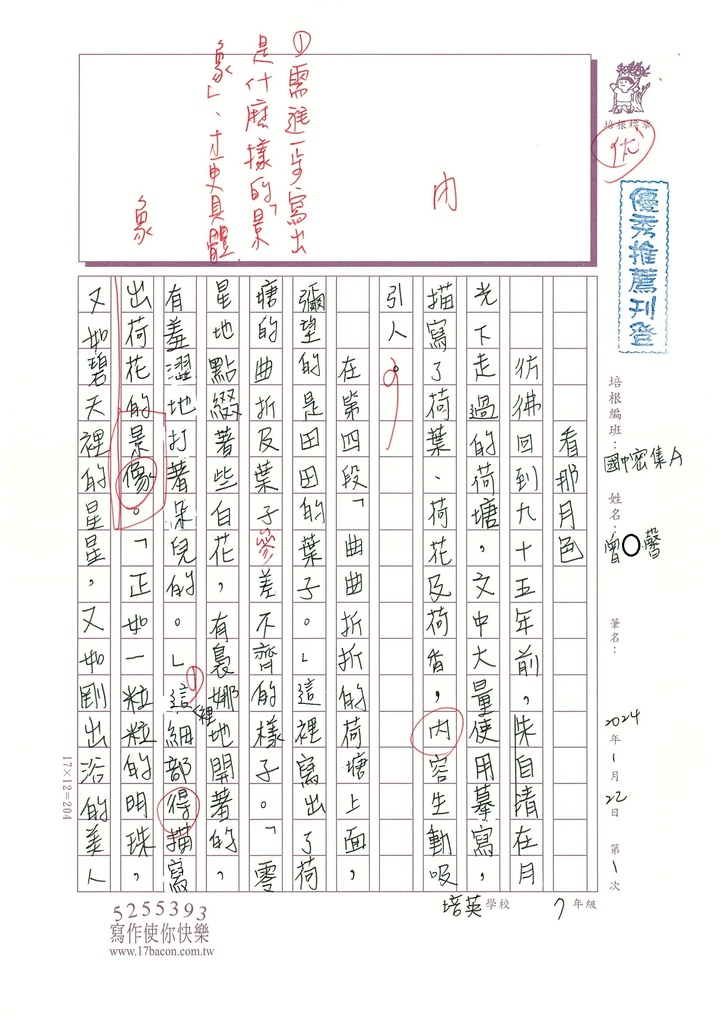 培根標章
優
優秀推薦刊登
培根編班：國中密集A
姓名：曾○馨
筆名：
2024年1月22日 第1次
培英學校 7年級
內
①需進一步寫出
是什麼樣的「景
象」，才更具體。
象
看那月色
彷彿回到九十五年前，朱自清在月
光下走過的荷塘。文中大量使用摹寫，
描寫了荷葉、荷花及荷香，內容生動吸
引人。
在第四段「曲曲折折的荷塘上面，
彌望的是田田的葉子。」這裡寫出了荷
塘的曲折及葉子參差不齊的樣子。「零
星地點綴著些白花，有裊娜地開著的，
有羞澀地打著朵兒的。」①這裡細部得描寫
出荷花的景像。「正如一粒粒的明珠，
又如碧天裡的星星，又如剛出浴的美人
17×12=204
5255393
寫作使你快樂
www.17bacon.com.tw